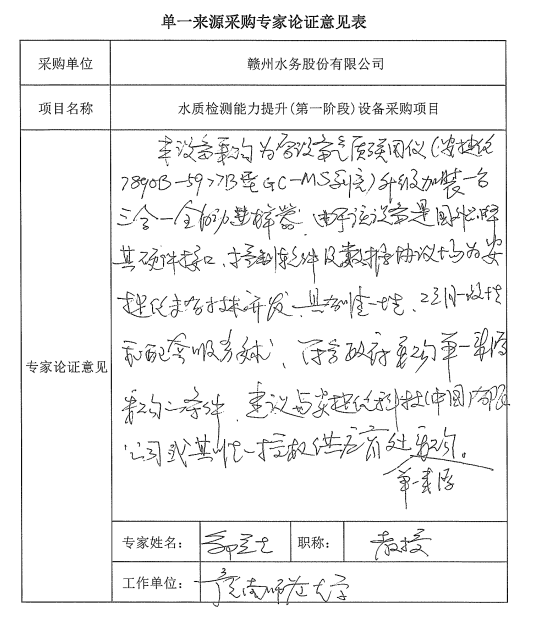 单一来源采购专家论证意见表
采购单位 赣州水务股份有限公司
项目名称 水质检测能力提升(第一阶段)设备采购项目
专家论证意见
本设备采购为原设备气质联用仪(安捷伦
7890B-5977B型GC-MS系统)升级加装一台
三合一全自动进样器,由于该设备是国外品牌
其硬件接口,控制软件及数据协议均为安
捷伦 技术开发,具 唯一性,
和配套服务 ,符合政府采购单一来源
采购 条件,建议与安捷伦科技(中国)有限
公司或其唯一授权供应商处采购。
单一来源
专家姓名: 职称: 教授
工作单位: 赣南师范大学